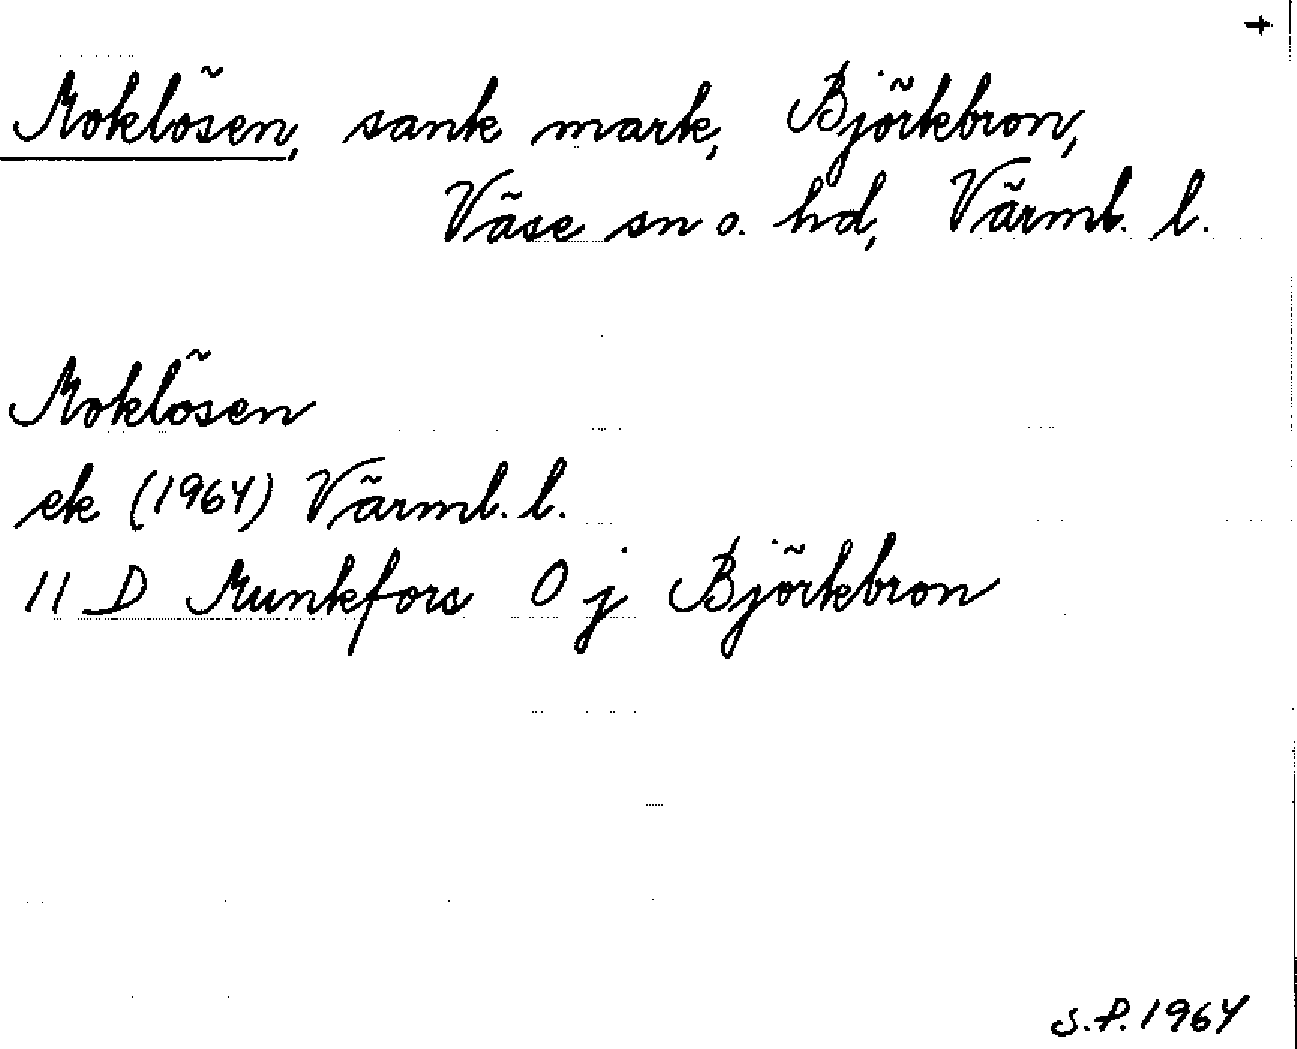 +
Moklösen, sank mark, Björkbron,
Väse sn o. hd, Värml. l.
Moklösen
ek (1964) Värml. l.
11 D Munkfors 0 j Björkbron
S.P. 1964